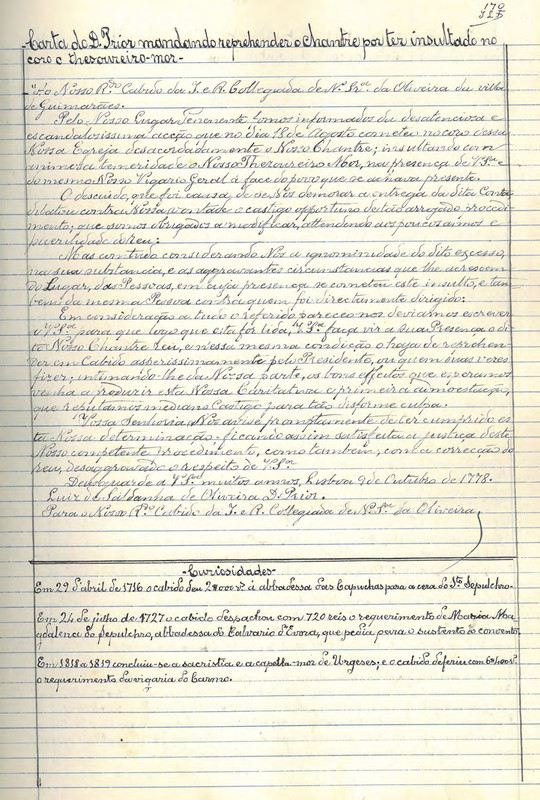 170
-Carta do D. Prior mandando reprehender o Chantre por ter insultado no
coro o Thesoureiro-mor-
"Ao Nosso R.do Cabido da I. e R. Collegiada de N.ª Sr.ª da Oliveira da villa
de Guimarães.
Pelo Nosso Lugar Tenente fomos informados da desatenciosa e
escandalosissima acção que no dia 18 de Agosto cometeu no coro dessa
Nossa Egreja desacordadamente o Nosso Chantre; insultando com
summa temeridade o Nosso Thezoureiro Mor, na presença de V.S.ª e
do mesmo Nosso Vigario Geral à face do povo que se achava presente.
O descuido, que foi causa de se Nos demorar a entrega da dita Conta,
dilatou contra Nossa vontade o castigo opportuno de tão arrojado procedi-
mento; que somos obrigados a modificar, attendendo aos poucos annos e
puerilidade do reu:
Mas comtudo considerando Nós a ignominidade do dito excesso,
na sua substancia, e as aggravantes circunstancias que lhe acrescem
do Lugar, das Pessoas, em cuja presença se cometeu este insulto, e tam-
bem da mesma Pessoa contra quem foi directamente dirigido:
Em consideração a tudo o referido pareceo-nos deviamos escrever
a V.S.ª para que logo que esta fôr lida, V.S.ª faça vir a sua Presença o di-
to Nosso Chantre Reu, e nessa mesma conducção o haja de reprehen-
der em Cabido asperissimamente pelo Presidente, ou quem suas vezes
fizer; intimando-lhe da Nossa parte, os bons effeitos que esperamos
venha a produzir esta Nossa Caritativa e primeira admoestação,
que reputamos mediano Castigo para tão disforme culpa.
Vossa Senhoria Nos avise promptamente de ter cumprido es-
ta Nossa determinação - ficando assim satisfeita a justiça deste
Nosso competente procedimento, como tambem, com a correcção do
reu, desaggravado o respeito de V.S.ª
Deus guarde a V.S.ª muitos annos, Lisboa 9 de Outubro de 1778.
Luiz de Saldanha de Oliveira D. Prior.
Para o Nosso R.do Cabido da I. e R. Collegiada de N.ª S.ra da Oliveira
-Curiosidades-
Em 29 d'abril de 1716 o cabido deu 2#000 rs. á abbadessa das Capuchas para a cera do S.to Sepulchro-
Em 24 de julho de 1727 o cabido despachou com 720 reis o requerimento de Maria Ma-
gdalena do Sepulchro, abbadessa do Calvario d'Evora, que pedia para o sustento do convento.
Em 1818 a 1819 concluiu-se a sacristia e a capella-mor de Urgeses; e o cabido deferiu com 6#400 rs.
o requerimento da vigaria do Carmo.